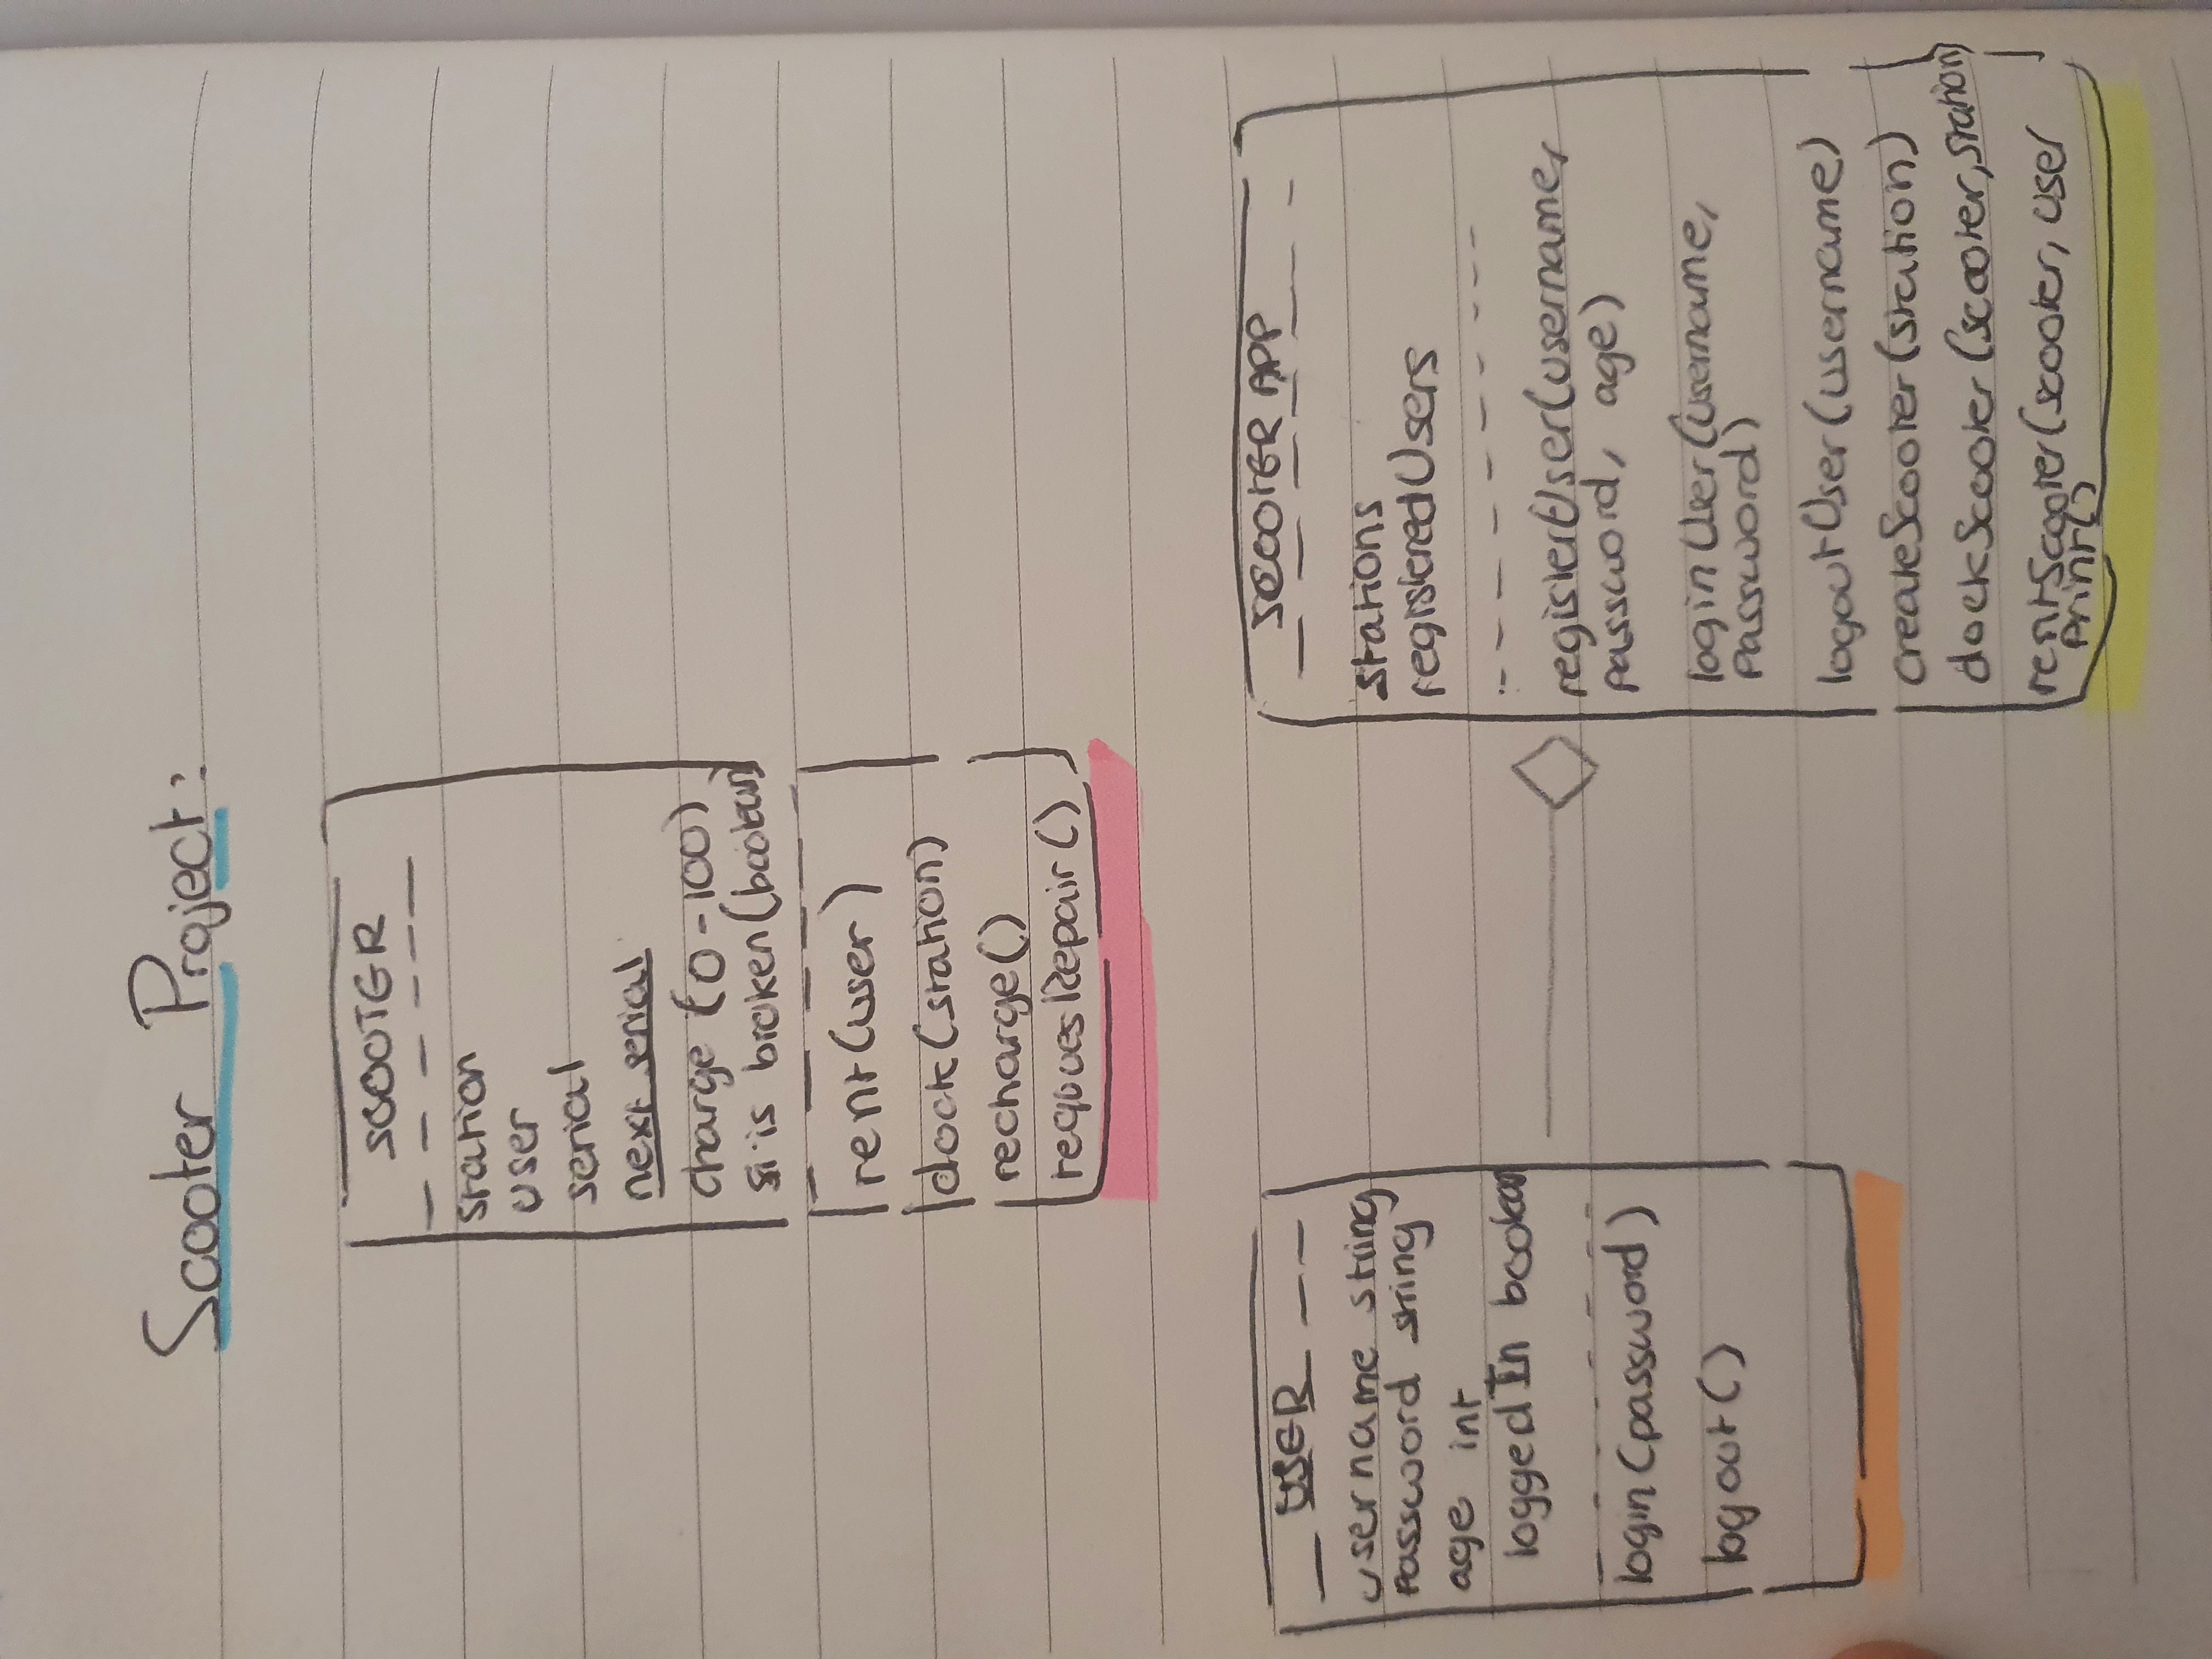 Scooter Project:
SCOOTER
station
user
serial
next serial
charge (0-100)
is broken (boolean)
rent(user)
dock(station)
recharge()
requesRepair()
USER
username string
password string
age int
loggedIn boolean
login(password)
logout()
SCOOTER APP
stations
registeredUsers
registerUser(username,
password, age)
loginUser(username,
password)
logoutUser(username)
createScooter(station)
dockScooter(scooter, station)
rentScooter(scooter, user
print()